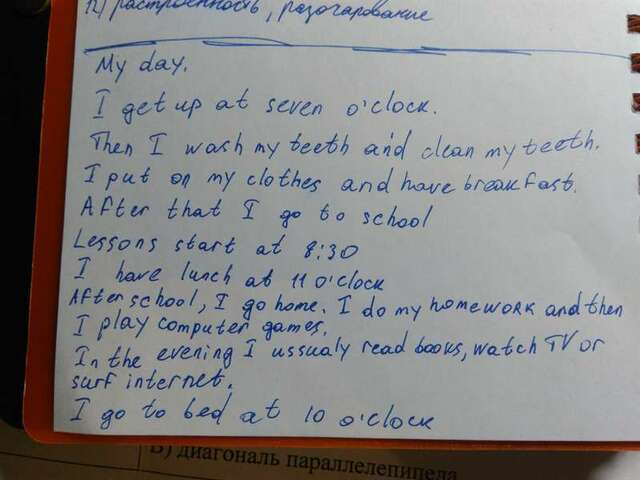 12) расстроенность, разочарование
My day.
I get up at seven o'clock.
Then I wash my teeth and clean my teeth.
I put on my clothes and have breakfast.
After that I go to school
Lessons start at 8:30
I have lunch at 11 o'clock
After school, I go home. I do my homework and then
I play computer games.
In the evening I ussualy read books, watch TV or
surf internet.
I go to bed at 10 o'clock
В) диагональ параллелепипеда